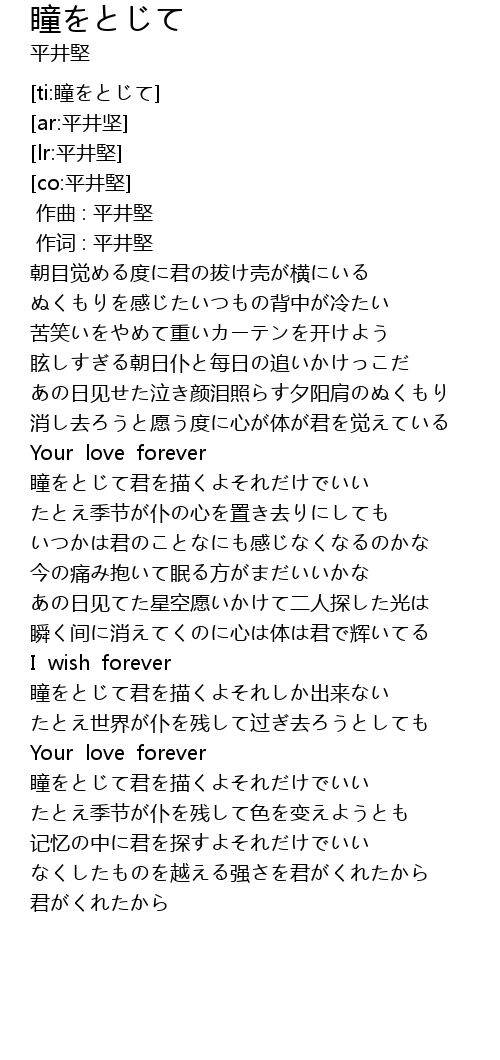 瞳をとじて
平井堅
[ti:瞳をとじて]
[ar:平井坚]
[lr:平井堅]
[co:平井堅]
作曲 : 平井堅
作词 : 平井堅
朝目觉める度に君の拔け壳が横にいる
ぬくもりを感じたいつもの背中が冷たい
苦笑いをやめて重いカーテンを开けよう
眩しすぎる朝日仆と每日の追いかけっこだ
あの日见せた泣き颜泪照らす夕阳肩のぬくもり
消し去ろうと愿う度に心が体が君を觉えている
Your love forever
瞳をとじて君を描くよそれだけでいい
たとえ季节が仆の心を置き去りにしても
いつかは君のことなにも感じなくなるのかな
今の痛み抱いて眠る方がまだいいかな
あの日见てた星空愿いかけて二人探した光は
瞬く间に消えてくのに心は体は君で辉いてる
I wish forever
瞳をとじて君を描くよそれしか出来ない
たとえ世界が仆を残して过ぎ去ろうとしても
Your love forever
瞳をとじて君を描くよそれだけでいい
たとえ季节が仆を残して色を变えようとも
记忆の中に君を探すよそれだけでいい
なくしたものを越える强さを君がくれたから
君がくれたから